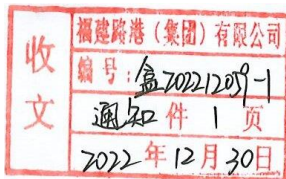 收文
福建路港（集团）有限公司
编号：盒20221209-1
通知 件 1 页
2022年12月30日